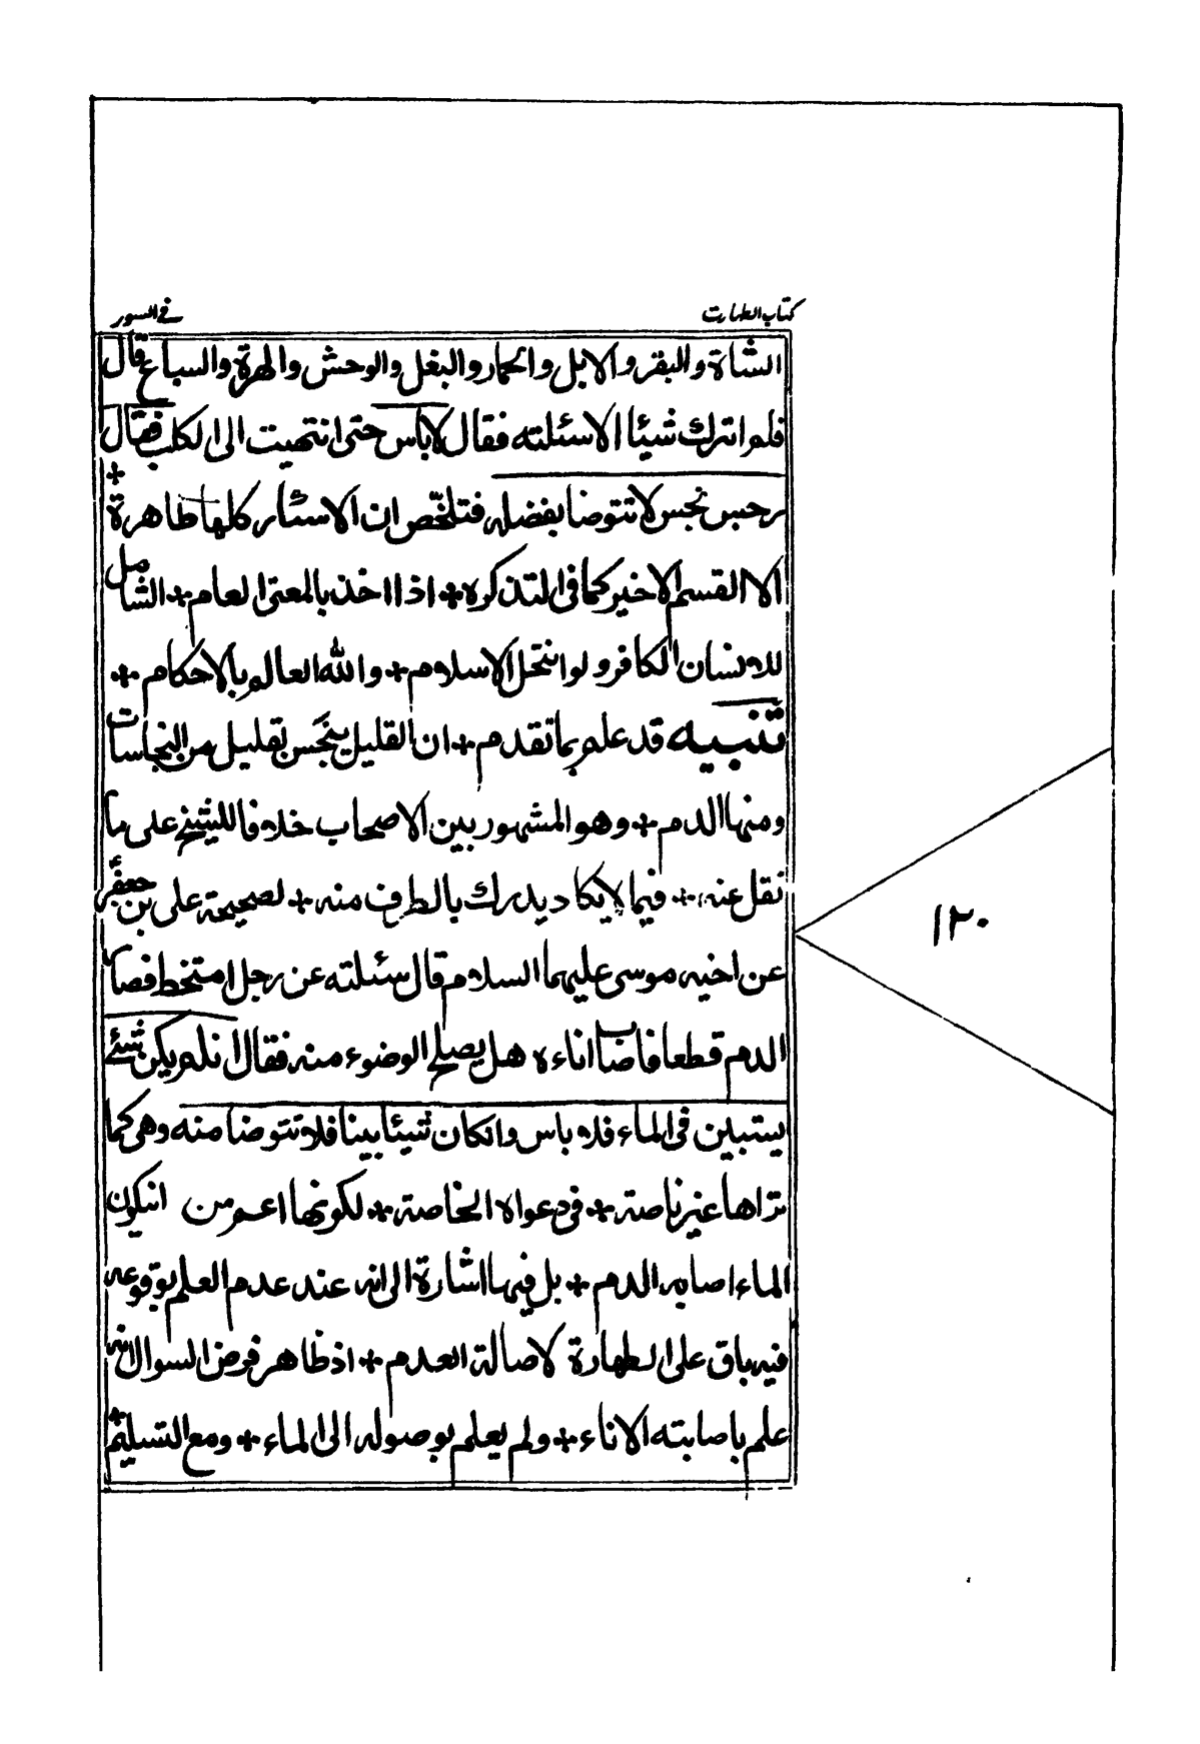 كتاب الطهارت
في السور
الشاة والبقر والابل والحمار والبغل والوحش والهرة والسباع قال
فلم اترك شيئا الا سئلته فقال لا باس حتى انتهيت الى الكلب فقال
رجس نجس لا تتوضا بفضله فتلخّص ان الاسئار كلها طاهرة +
الا القسم الاخير كما في التذكرة + اذا اخذ بالمعنى العام + الشامل
للانسان الكافر ولو انتحل الاسلام + والله العالم بالاحكام +
تنبيه قد علم بما تقدم + ان القليل ينجّس بقليل من النجاسات
ومنها الدم + وهو المشهور بين الاصحاب خلافا للشيخ على ما
نقل عنه + فيما لا يكاد يدرك بالطرف منه + لصحيحة على بن جعفر
عن اخيه موسى عليهما السلام قال سئلته عن رجل امتخط فصار
الدم قطعا فاصاب اناءه هل يصلح الوضوء منه فقال ان لم يكن شئ
يستبين في الماء فلا باس وانكان شيئا بينا فلا تتوضا منه وهى كما
تراها غير ناصة + في دعواه الخاصة + لكونها اعم من انيكون
الماء اصابه الدم + بل فيها اشارة الى انه عند عدم العلم بوقوعه
فيه باق على الطهارة لاصالة العدم + اذ ظاهر فرض السوال انه
علم باصابته الاناء + ولم يعلم بوصوله الى الماء + ومع التسليم
١٢٠